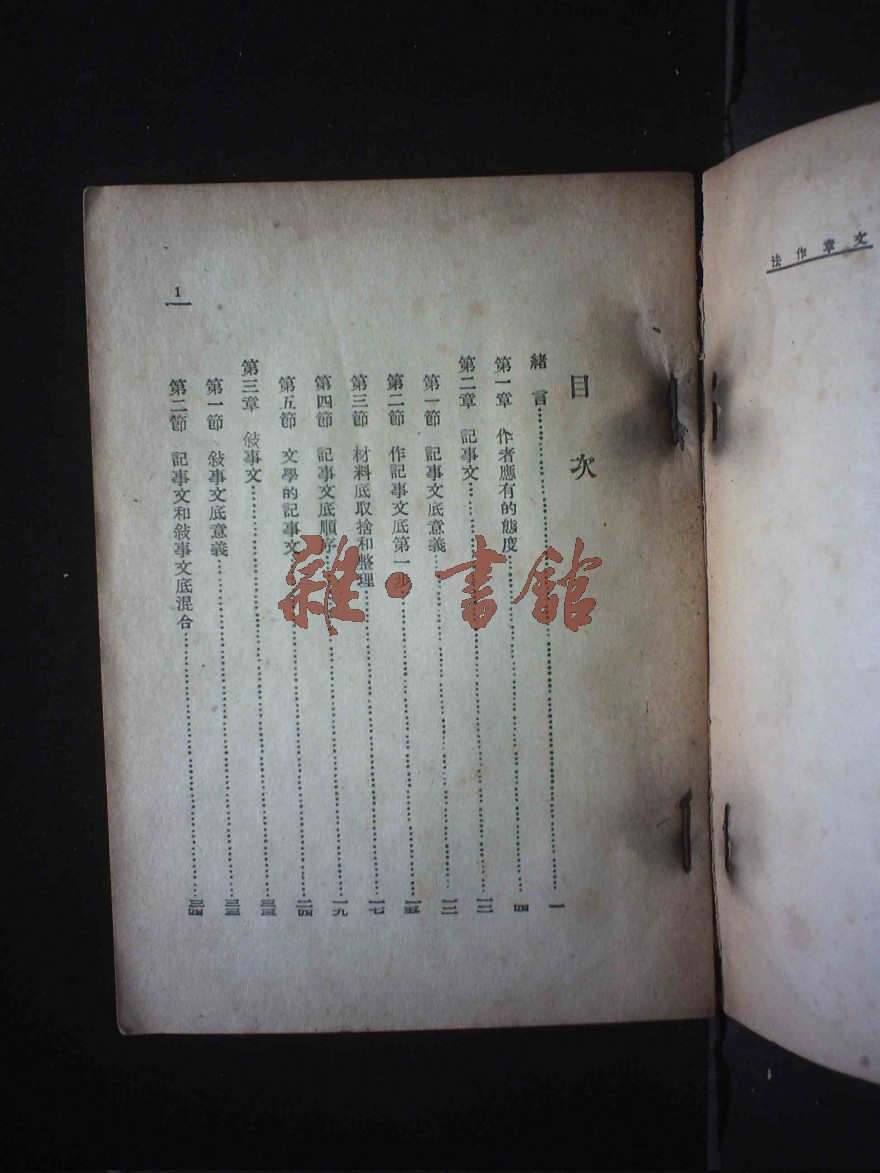 文章作法
目次
緒言 一
第一章 作者應有的態度 四
第二章 記事文 一二
第一節 記事文底意義 一二
第二節 作記事文底第一步 一五
第三節 材料底取捨和整理 一七
第四節 記事文底順序 一九
第五節 文學的記事文 二四
第三章 敍事文 三三
第一節 敍事文底意義 三三
第二節 記事文和敍事文底混合 三四
1
雜·書館